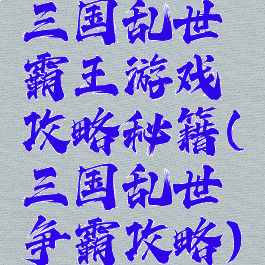 三国乱世
霸王游戏
攻略秘籍(
三国乱世
争霸攻略)